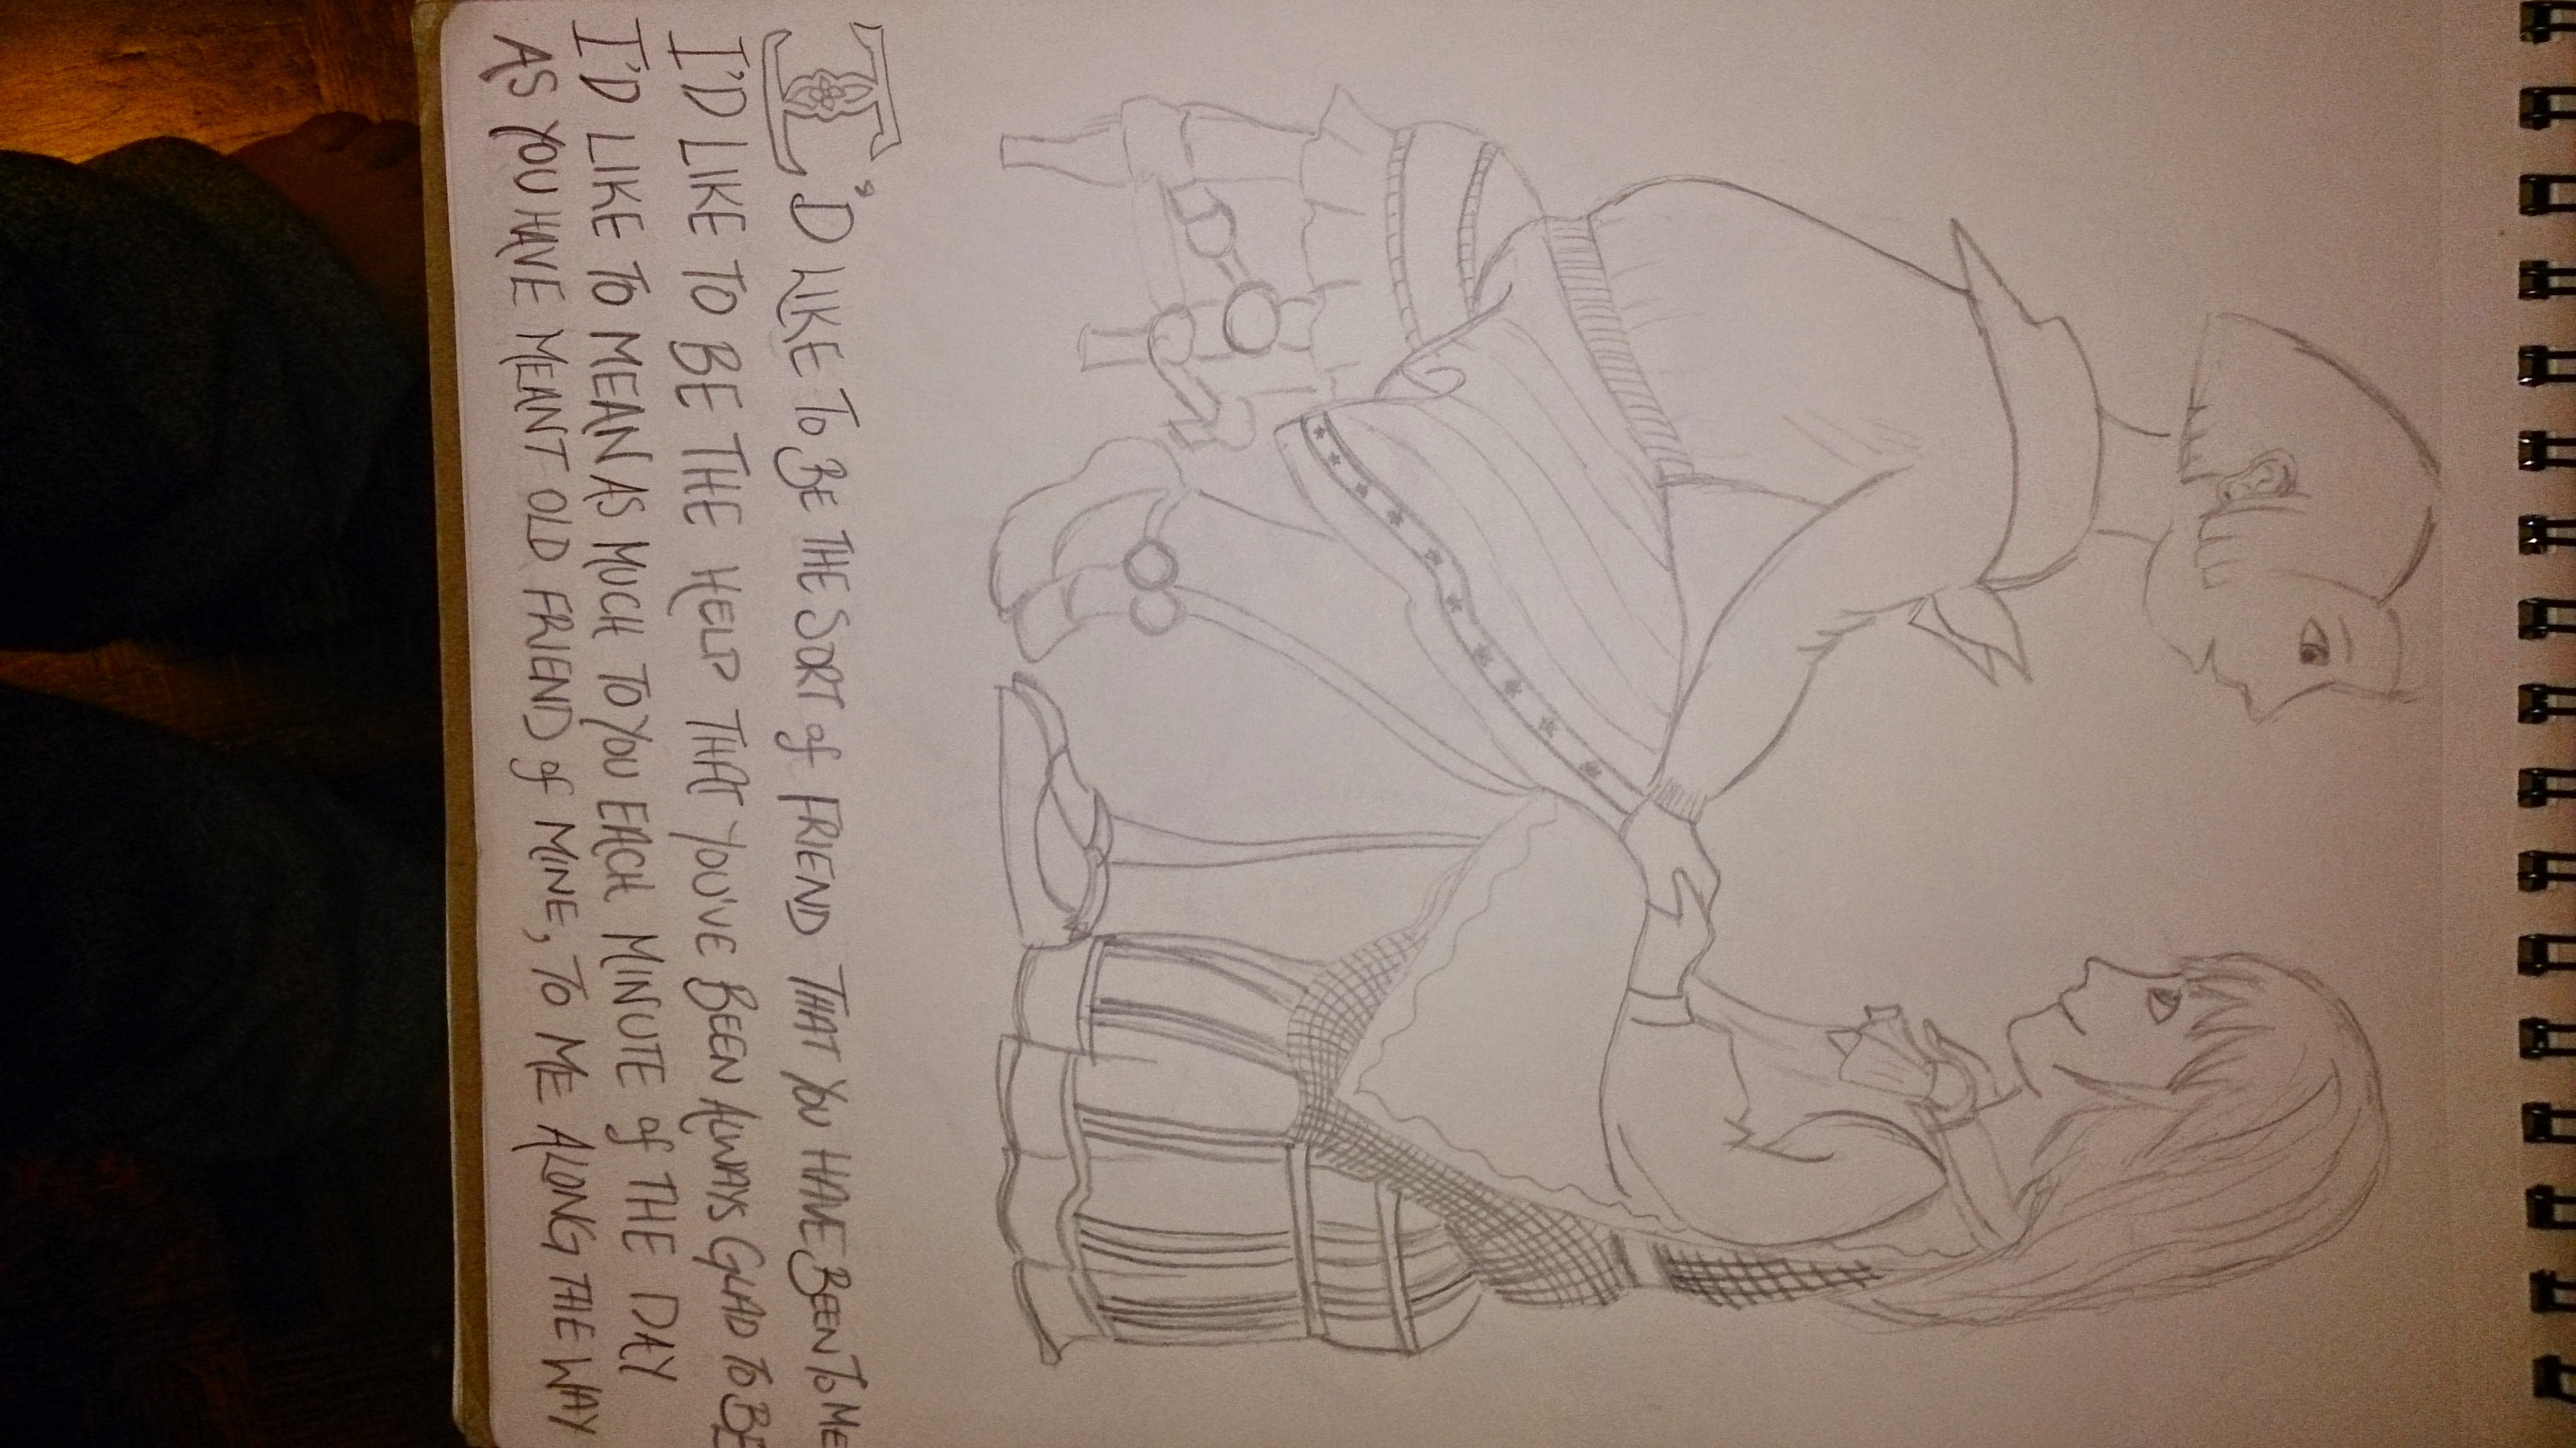 I'D LIKE TO BE THE SORT of FRIEND THAT YOU HAVE BEEN TO ME
I'D LIKE TO BE THE HELP THAT YOU'VE BEEN ALWAYS GLAD TO BE
I'D LIKE TO MEAN AS MUCH TO YOU EACH MINUTE of THE DAY
AS YOU HAVE MEANT OLD FRIEND of MINE, TO ME ALONG THE WAY